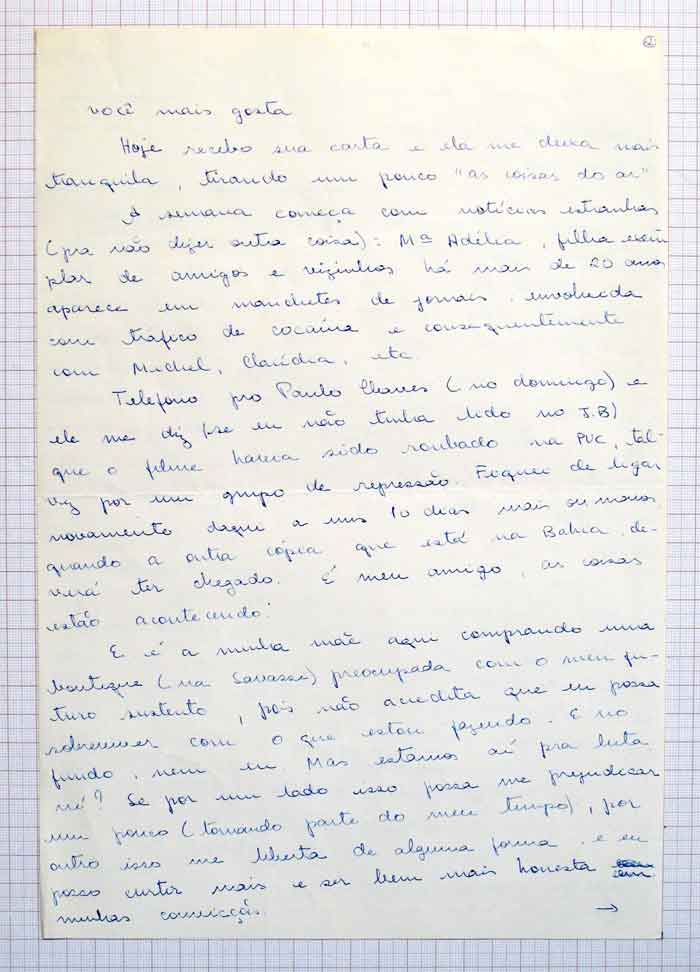 2
você mais gosta
Hoje recebo sua carta e ela me deixa mais
tranquila, tirando um pouco "as coisas do ar"
A semana começa com notícias estranhas
(pra não dizer outra coisa): Mª Adélia, filha exem
plar de amigos e vizinhos há mais de 20 anos
aparece em manchetes de jornais, envolvida
com tráfico de cocaína e consequentemente
com Michel, Claúdia, etc.
Telefono pro Paulo Chaves (no domingo) e
ele me diz (se eu não tinha lido no J.B)
que o filme havia sido roubado na PUC, tal-
vez por um grupo de repressão. Fiquei de ligar
novamente daqui a uns 10 dias mais ou menos,
quando a outra cópia que está na Bahia, de-
verá ter chegado. É meu amigo, as coisas
estão acontecendo!
E é a minha mãe aqui comprando uma
boutique (na Savassi) preocupada com o meu fu-
turo sustento, pois não acredita que eu possa
sobreviver com o que estou fazendo. E no
fundo, nem eu. Mas estamos aí pra luta
né? Se por um lado isso possa me prejudicar
um pouco (tomando parte do meu tempo), por
outro isso me liberta de alguma forma, e eu
posso curtir mais e ser bem mais honesta em
minhas convicções.
→